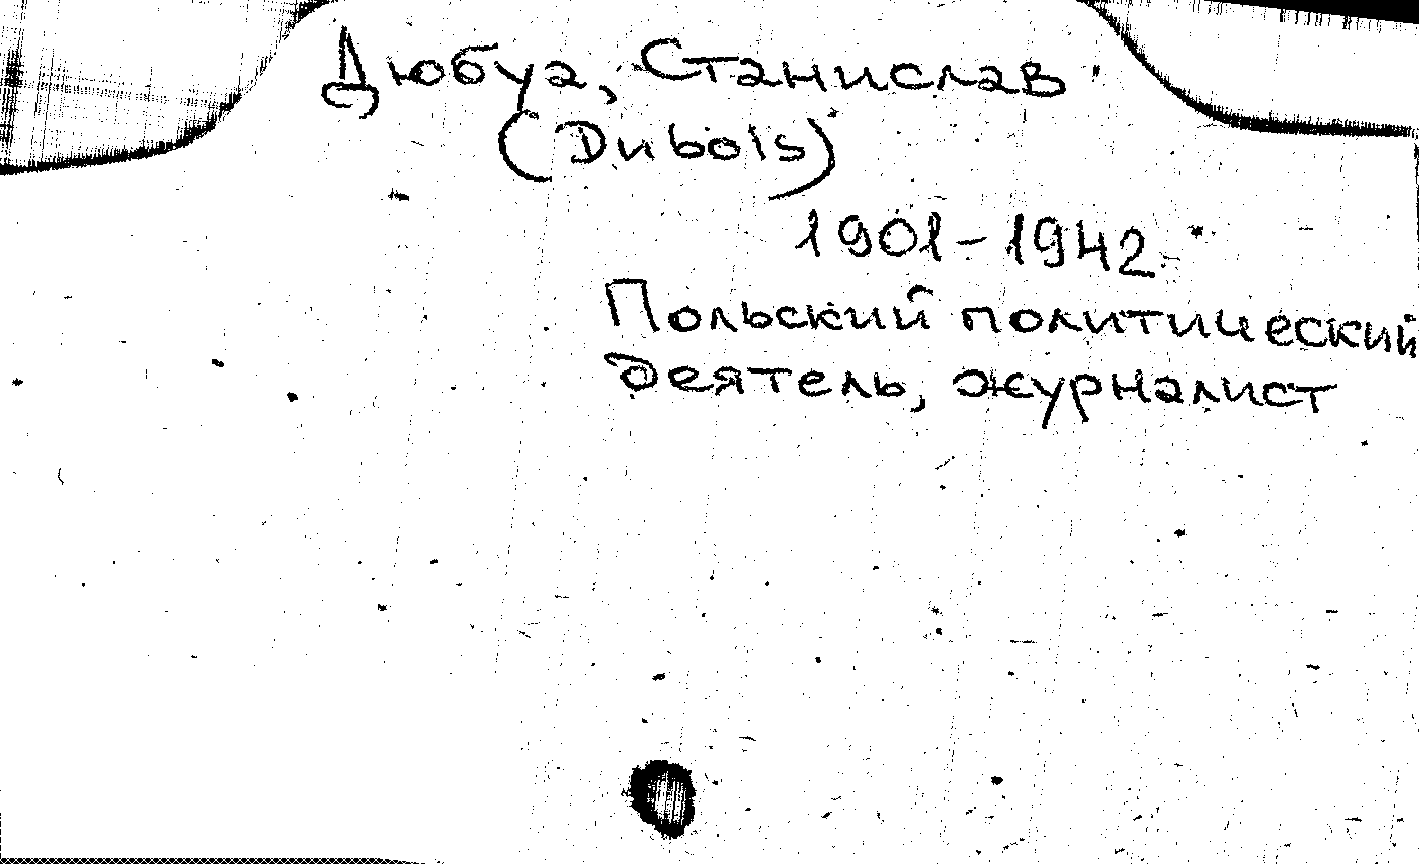 Дюбуа, Станислав
(Dubois)
1901-1942
Польский политический
деятель, журналист